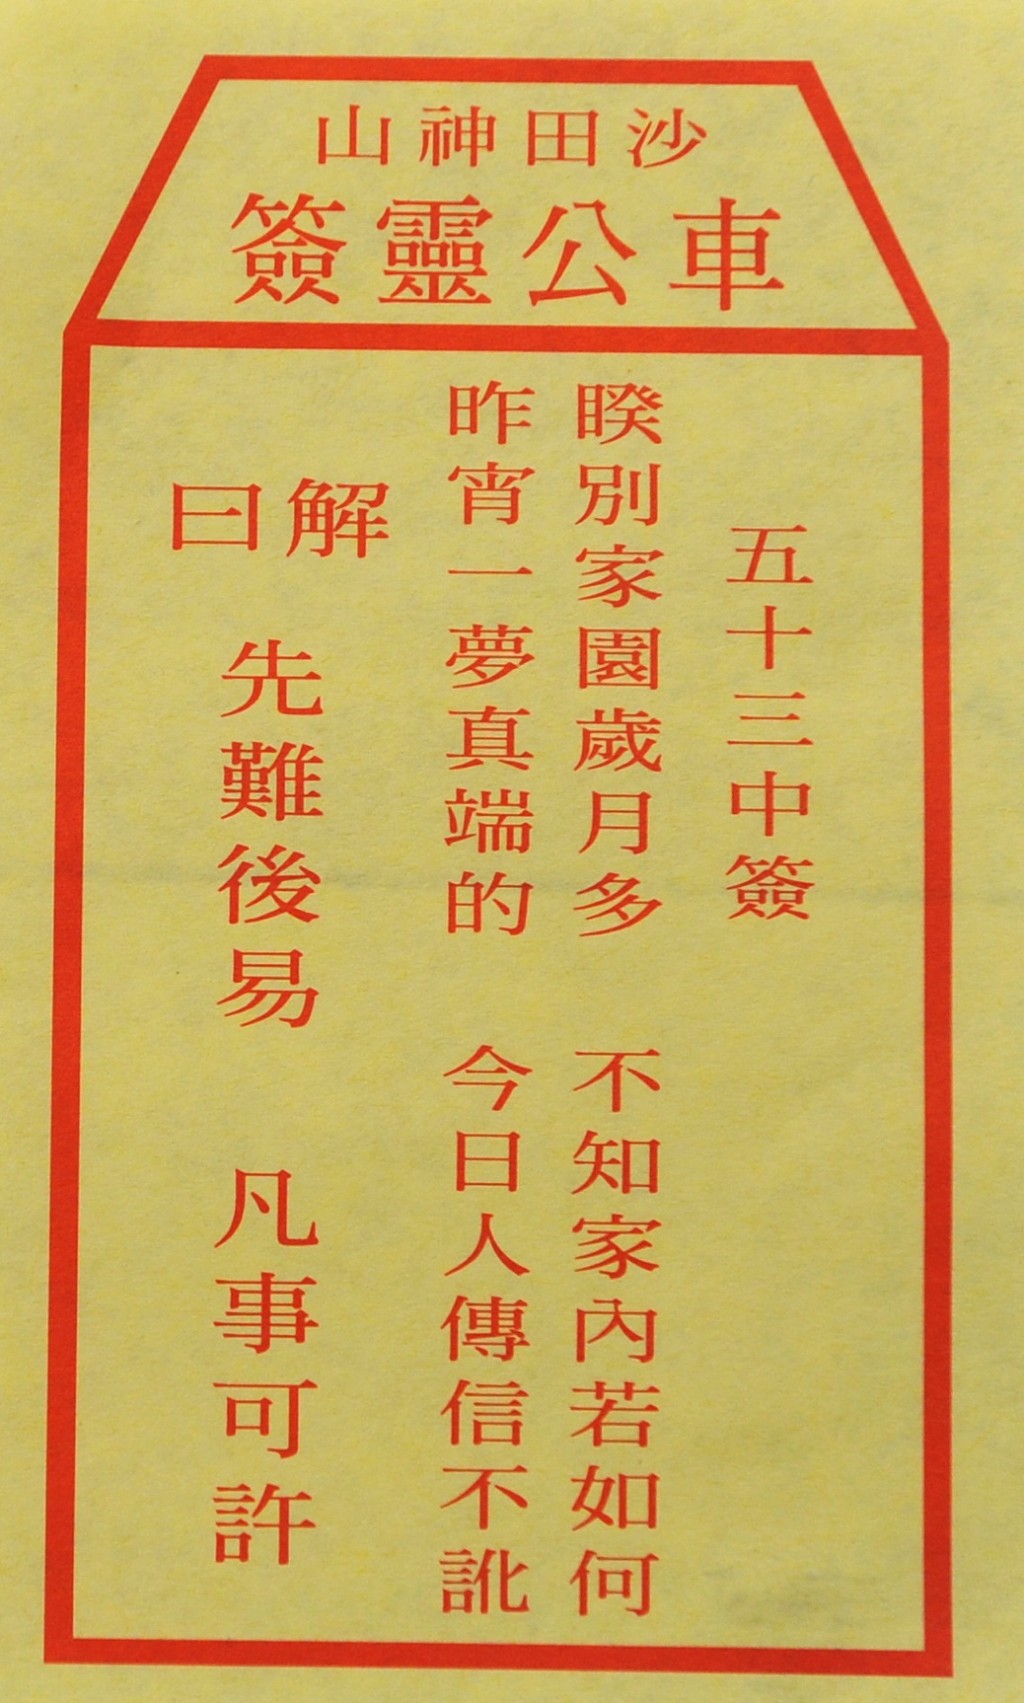 沙田神山
車公靈簽
五十三中簽
睽別家園歲月多　不知家內若如何
昨宵一夢真端的　今日人傳信不訛
解曰
先難後易　凡事可許